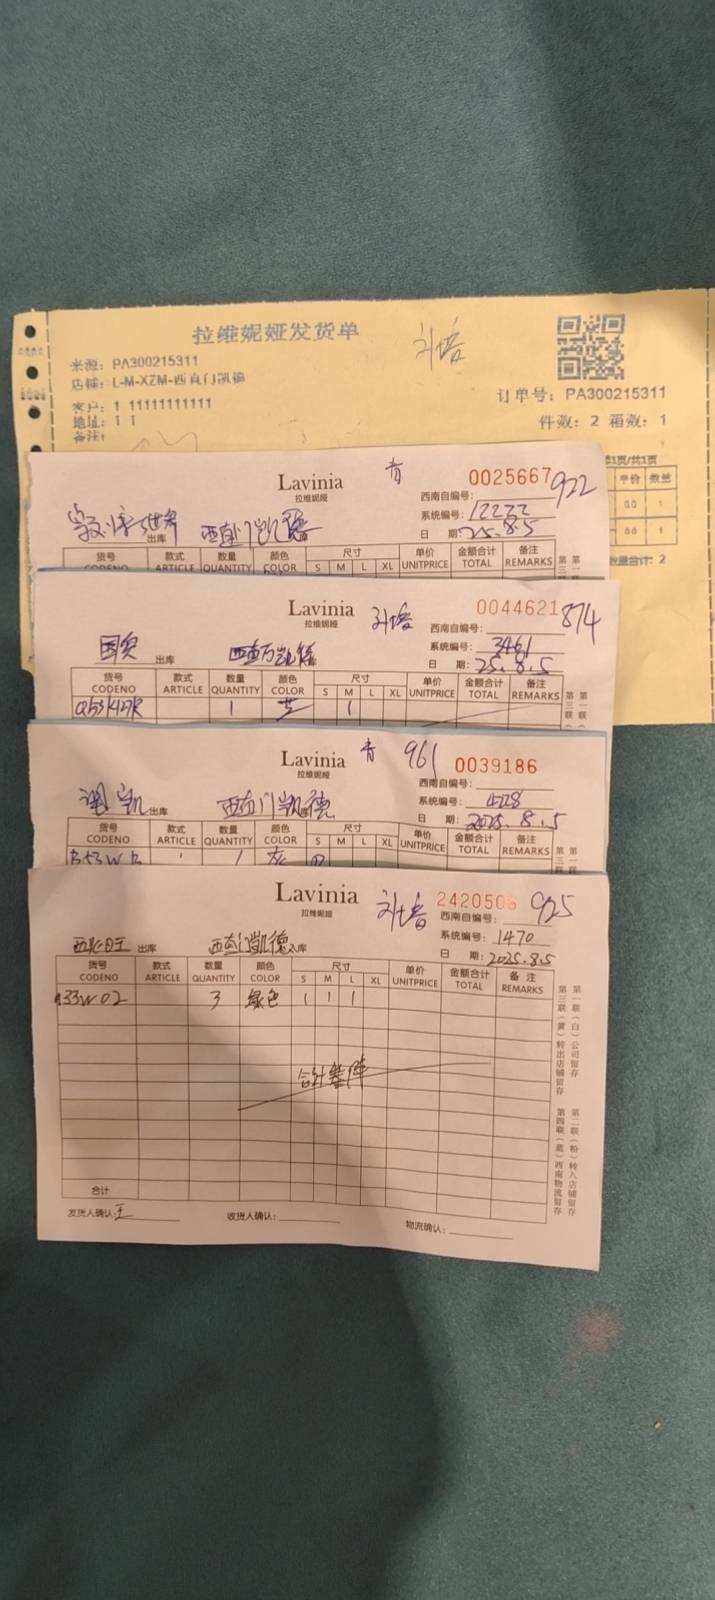 拉维妮娅发货单
来源：PA300215311
店铺：L-M-XZM-西直门凯德
订单号：PA300215311
客户：1 11111111111
件数：2 箱数：1
地址：1 1
备注：
第1页/共1页
单价 数量
0.0 1
0.0 1
数量合计：2
Lavinia 0025667 922
拉维妮娅
西南自编号：
系统编号：12222
出库 西直门凯德
日 期：25.8.5
货号 款式 数量 颜色 尺寸 单价 金额合计 备注
CODENO ARTICLE QUANTITY COLOR S M L XL UNITPRICE TOTAL REMARKS
Lavinia 0044621 874
拉维妮娅
西南自编号：
系统编号：3461
国贸 出库 西直门凯德
日 期：25.8.5
货号 款式 数量 颜色 尺寸 单价 金额合计 备注
CODENO ARTICLE QUANTITY COLOR S M L XL UNITPRICE TOTAL REMARKS
1 1
Lavinia 961 0039186
拉维妮娅
西南自编号：
系统编号：4228
出库 西直门凯德
日 期：2025.8.5
货号 款式 数量 颜色 尺寸 单价 金额合计 备注
CODENO ARTICLE QUANTITY COLOR S M L XL UNITPRICE TOTAL REMARKS
1 灰
Lavinia 2420506 925
拉维妮娅
西南自编号：
系统编号：1470
出库 西直门凯德入库
日 期：2025.8.5
货号 款式 数量 颜色 尺寸 单价 金额合计 备注
CODENO ARTICLE QUANTITY COLOR S M L XL UNITPRICE TOTAL REMARKS
33W02 3 绿色 1 1 1
合计叁件
合计
第一联（白）公司留存
第二联（粉）转入店铺留存
第三联（黄）转出店铺留存
第四联（蓝）西南物流留存
发货人确认：王
收货人确认：
物流确认：